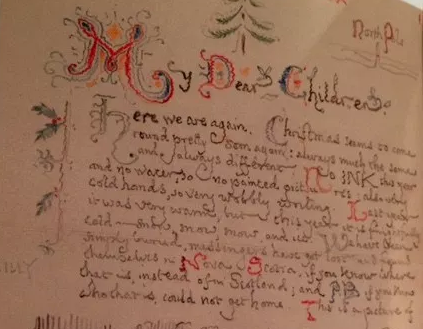 North Pole
My Dear Children
Here we are again. Christmas seems to come
round pretty soon again: always much the same
and always different. No INK this year
and no water, so no painted pictures; also very
cold hands, so very wobbly writing. Last year
it was very warm, but this year it is frightfully
cold — snow, snow, snow and ice. We have been
simply buried, messengers have got lost and found
themselves in Nova Scotia, if you know where
that is, instead of in Scotland; and PB if you know
who that is, could not get home. This is a picture of